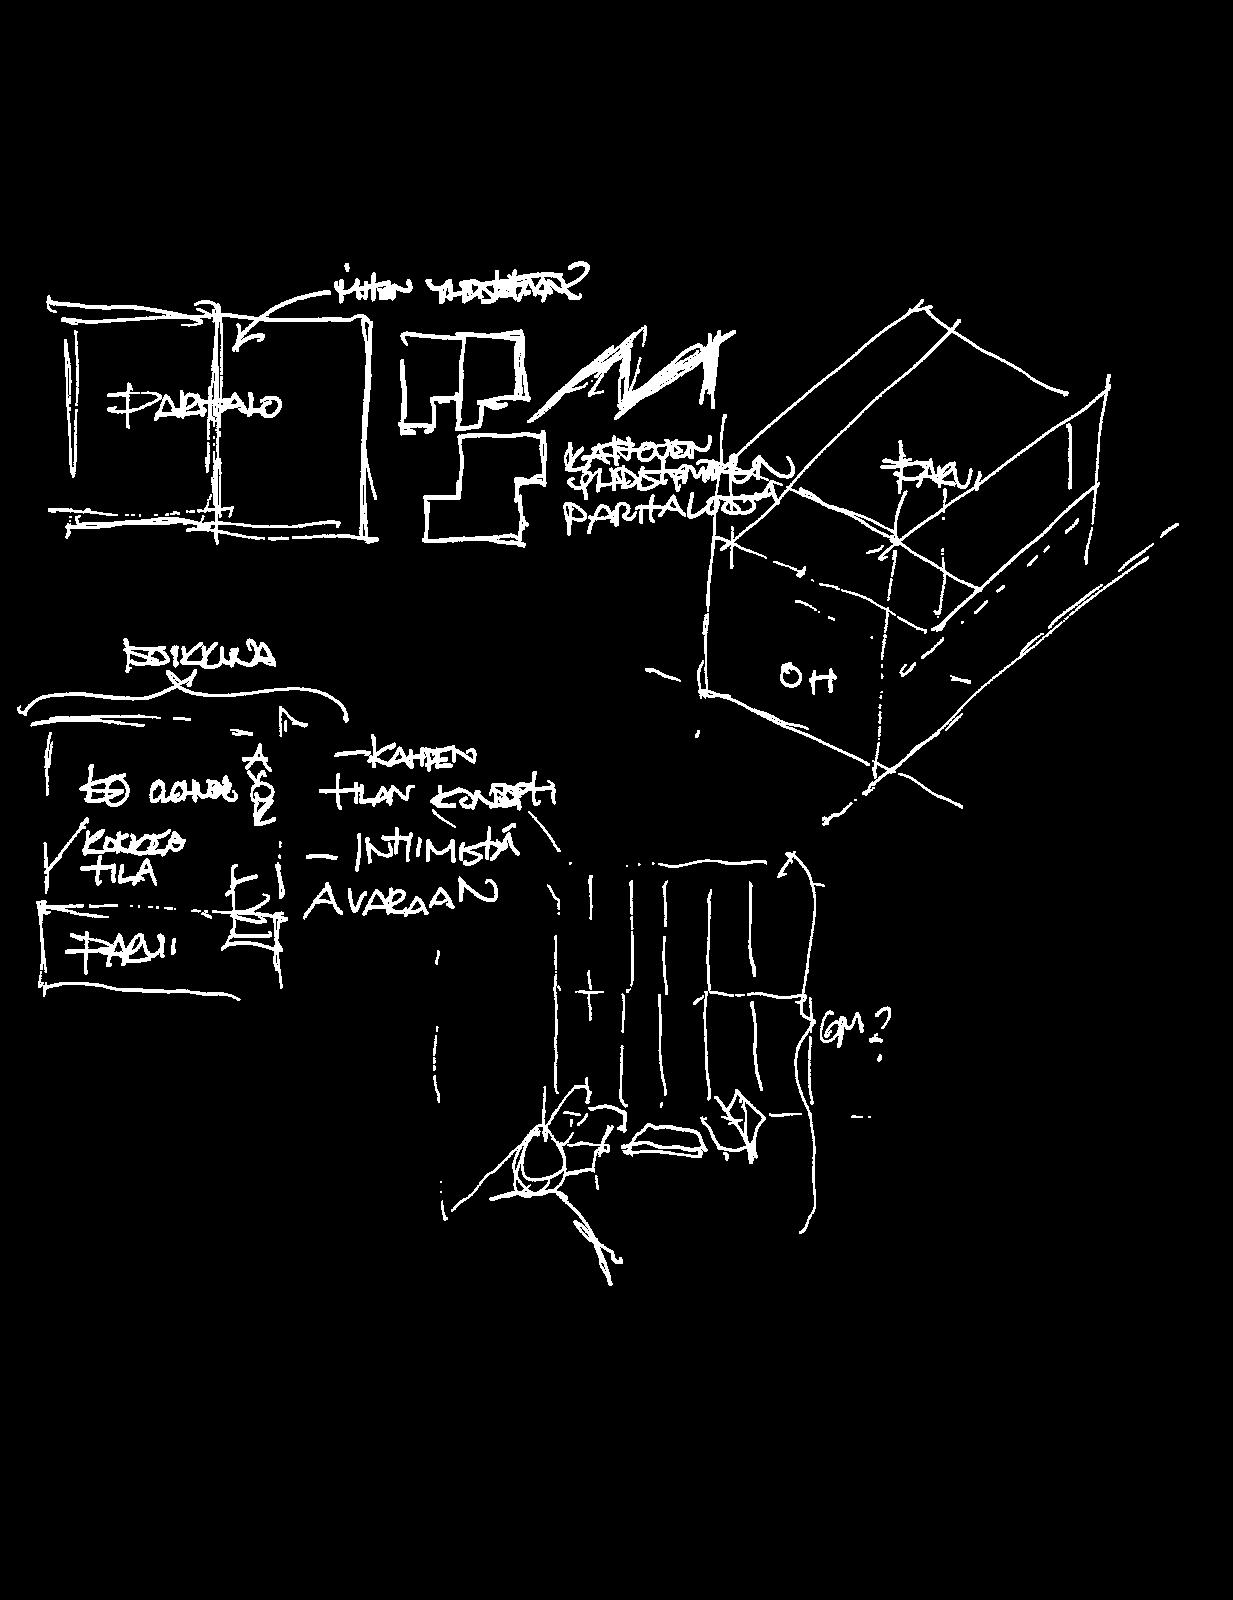 MITEN YHDISTETÄÄN?
PARITALO
KATTOJEN
YHDISTÄMINEN
PARITALOSSA
PARVI
OH
ESIKKUNA
KORKEA
TILA
PARVI
- KAHDEN
TILAN KONSEPTI
- INTIIMISTÄ
AVARAAN
6M?